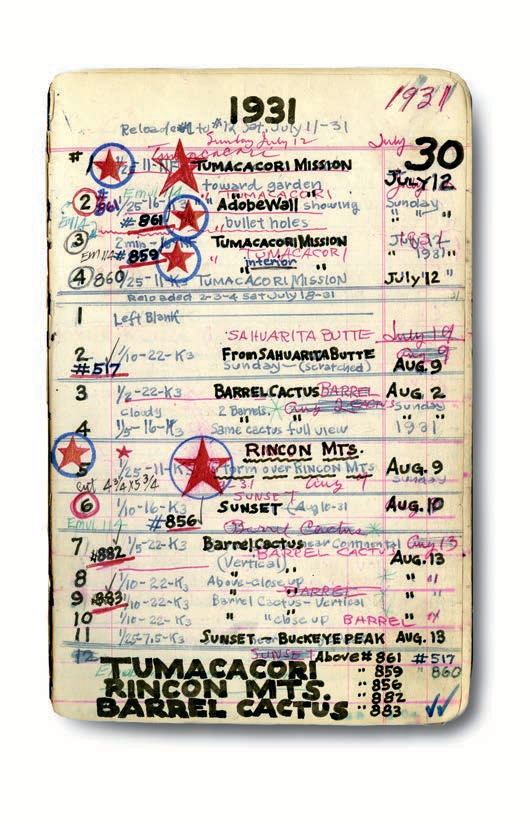 1931
1931
Reloaded #1 to #12 Sat. July 11-31
Sunday July 12
July 30
Tumacacori
#1 1/25-11-K3 TUMACACORI MISSION July 12
toward garden
TUMACACORI
2 #861 1/25-16-K3 Adobe Wall showing Sunday
#861 bullet holes " "
3 2 min-16-K3 TUMACACORI MISSION July 12
TUMACACORI
Eml 114 #859 " interior " 1931
4 860 1/25-11-K3 TUMACACORI MISSION July 12 "
Reloaded 2-3-4 Sat July 18-31
1 Left Blank
SAHUARITA BUTTE July 19
2 1/10-22-K3 From SAHUARITA BUTTE Aug 9
#517 Sunday-(scratched) AUG. 9
3 1/2-22-K3 BARREL CACTUS BARREL AUG. 2
cloudy 2 Barrels. Aug 2 CACTUS Sunday
4 1/5-16-K3 Same cactus full view 1931
RINCON MTS.
5 1/25-11-K3 Storm over RINCON MTS AUG. 9
Cut 4 3/4 x 5 3/4 31 Aug 9 Sunday
SUNSET
6 1/10-16-K3 SUNSET (Aug 10-31 AUG. 10
Emul 114 #856 Barrel Cactus
7 1/5-22-K3 Barrel Cactus near Continental Aug 13
#882 (Vertical) BARREL CACTUS AUG. 13
8 1/10-22-K3 Above-close up " "
BARREL
9 #883 1/10-22-K3 Barrel Cactus-Vertical " "
10 1/10-22-K3 " " close up BARREL " "
11 1/25-7.5-K3 SUNSET - BUCKEYE PEAK AUG. 13
12 SUNSET Above #861 #517
TUMACACORI " 859 " 860
RINCON MTS. " 856
" 882
BARREL CACTUS " 883